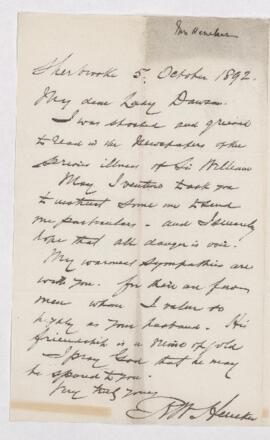 Mr Heneker
Sherbrooke 5. October 1892.
My dear Lady Dawson.
I was shocked and grieved
to read in the Newspapers of the
serious illness of Sir William
May I venture to ask you
to instruct some one to send
me particulars - and I sincerely
hope that all danger is over.
My warmest sympathies are
with you. for there are few
men whom I value so
highly as your husband. His
friendship is a mine of gold
I pray God that he may
be spared to you.
Very truly yours
R W Heneker